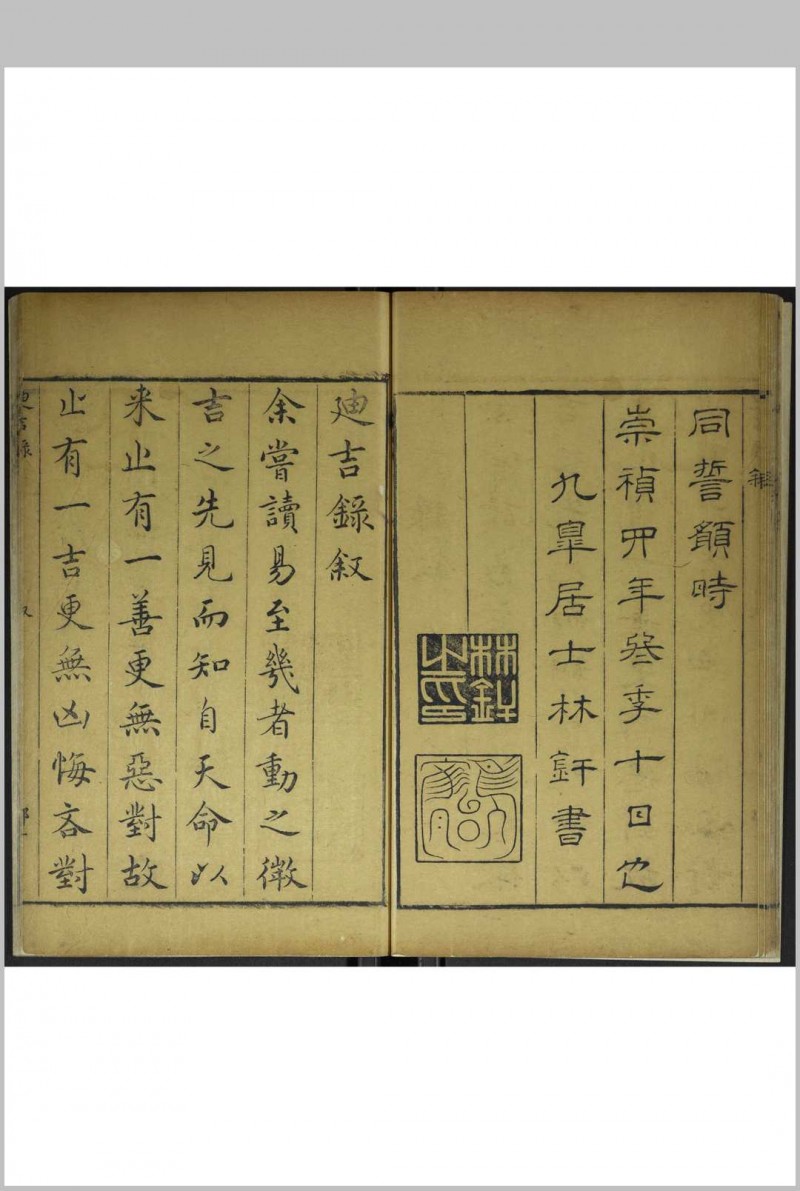 同誓願時
崇禎四年叁季十日也
九皐居士林釬書
林釬之印
廸吉錄叙
余嘗讀易至幾者動之微
吉之先見而知自天命以
来止有一善更無惡對故
止有一吉更無凶悔吝對